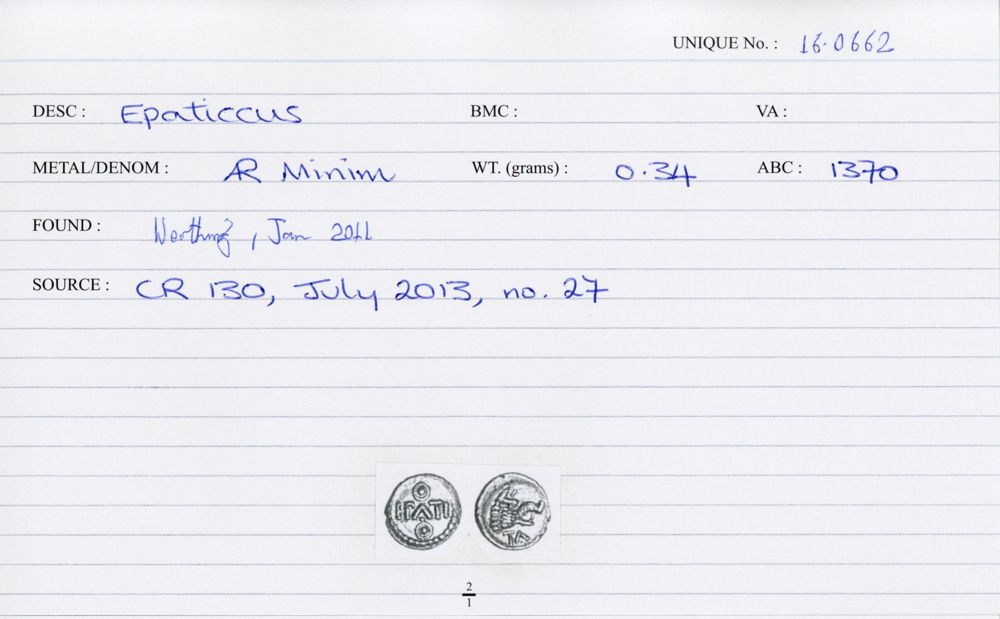 UNIQUE No. : 16.0662
DESC : Epaticcus BMC : VA :
METAL/DENOM : AR Minim WT. (grams) : 0.34 ABC : 1370
FOUND : Worthing, Jan 2011
SOURCE : CR 130, July 2013, no. 27
EPATI
TA
2
1